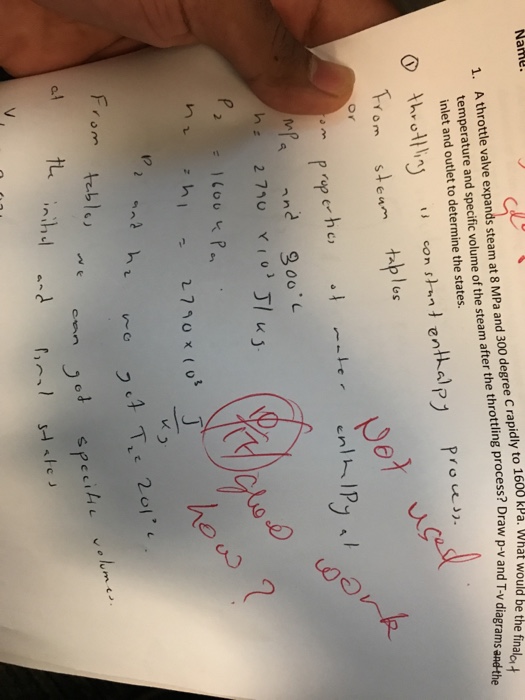 Name:
1. A throttle valve expands steam at 8 MPa and 300 degree C rapidly to 1600 kPa. What would be the final
temperature and specific volume of the steam after the throttling process? Draw p-v and T-v diagrams and the
inlet and outlet to determine the states.
① throttling is constant enthalpy process.
From steam tables
or
properties of water enthalpy at
MPa and 300°C
h = 2790 x10³ J/kg.
P2 = 1600 kPa
h2 = h1 = 2790 x 10³ J/kg
P2 and h2 we get T2 = 201°C.
From tables we can get specific volumes.
at the initial and final states
Not used
good work
how?